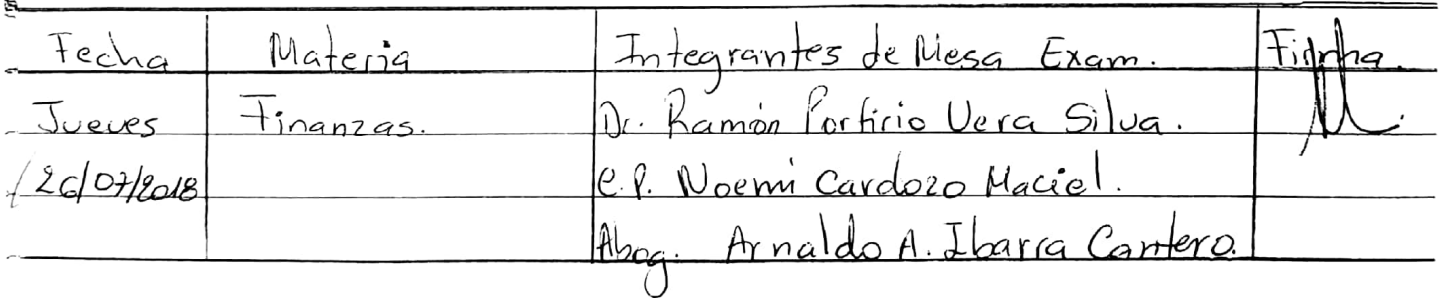 Fecha Materia Integrantes de Mesa Exam. Firma.
Jueves Finanzas. Dr. Ramón Porfirio Vera Silva.
26/07/2018 C.P. Noemi Cardozo Maciel.
Abog. Arnaldo A. Ibarra Cantero.